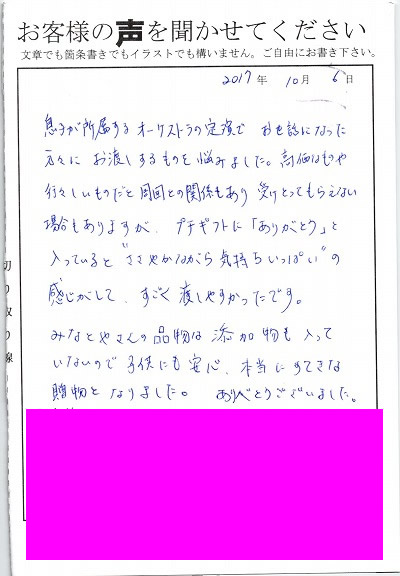 お客様の声を聞かせてください
文章でも箇条書きでもイラストでも構いません。ご自由にお書き下さい。
2017年 10月 6日
息子が所属するオーケストラの定演で お世話になった
方々に お渡しするものを悩みました。高価なものや
行々しいものだと周囲との関係もあり 受けとってもらえない
場合もありますが、プチギフトに「ありがとう」と
入っていると“ささやかながら気持ちいっぱい”の
感じがして、すごく渡しやすかったです。
みなとやさんの品物は添加物も入って
いないので子供にも安心、本当にすてきな
贈物となりました。 ありがとうございました。
切り取り線